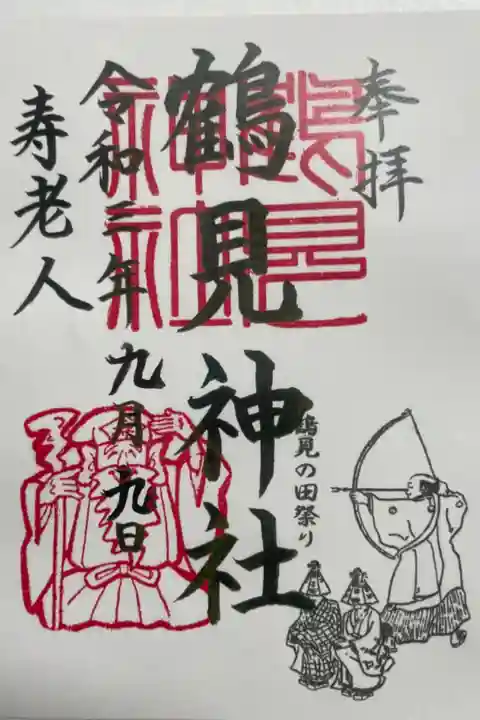 奉拝
鶴見神社
令和二年九月九日
寿老人
鶴見の田祭り